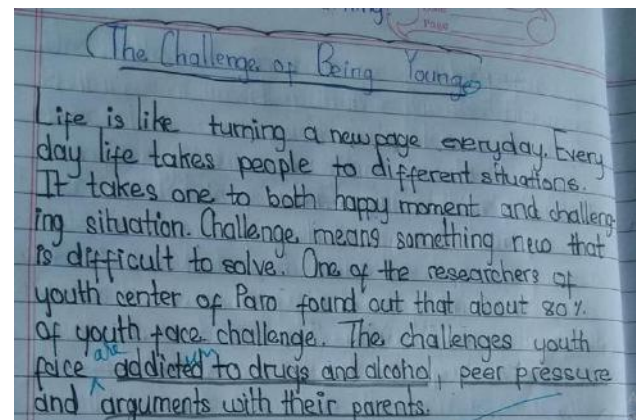 Page
The Challenge of Being Younge
Life is like turning a new page everyday. Every
day life takes people to different situations.
It takes one to both happy moment and challeng-
ing situation. Challenge means something new that
is difficult to solve. One of the researchers of
youth center of Paro found out that about 80%
of youth face challenge. The challenges youth
face are addicted to drugs and alcohol, peer pressure
and arguments with their parents.